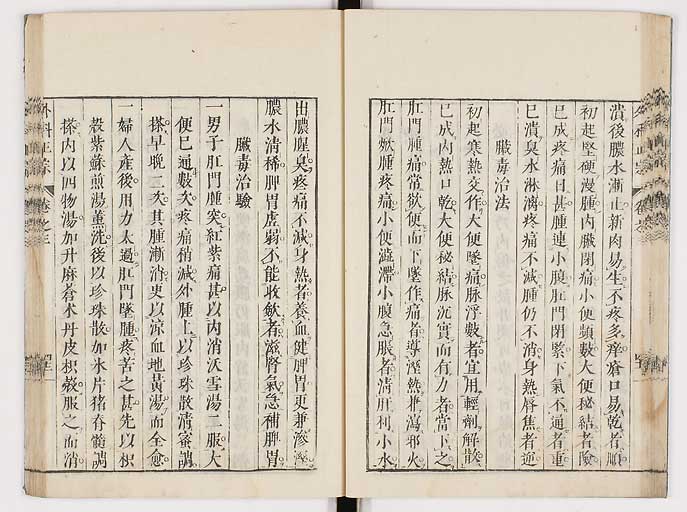 潰後膿水漸止新肉易生不疼多痒瘡口易乾者順
初起堅硬漫腫內臟閉痛小便頻數大便秘結者險
已成疼痛日甚腫連小腹肛門閉緊下氣不通者重
已潰臭水淋漓疼痛不減腫仍不消身熱唇焦者逆
臟毒治法
初起寒熱交作大便墜痛脉浮數者宜用輕劑解散
已成內熱口乾大便秘結脉沉實而有力者當下之
肛門腫痛常欲便而下墜作痛者導濕熱兼瀉邪火
肛門焮腫疼痛小便澁滯小腹急脹者清肝利小水
出膿腥臭疼痛不減身熱者養血健脾胃更兼滲濕
膿水清稀脾胃虛弱不能收斂者滋腎氣急補脾胃
臟毒治驗
一男子肛門腫突紅紫痛甚以內消沃雪湯二服大
便已通數次疼痛稍減外腫上以珍珠散清蜜調
搽早晚二次其腫漸消更以涼血地黃湯而全愈
一婦人產後用力太過肛門墜腫疼苦之甚先以枳
殼紫蘇煎湯薰洗後以珍珠散加氷片猪脊髓調
搽內以四物湯加升麻蒼术丹皮枳殼服之而消
外科正宗
卷之三